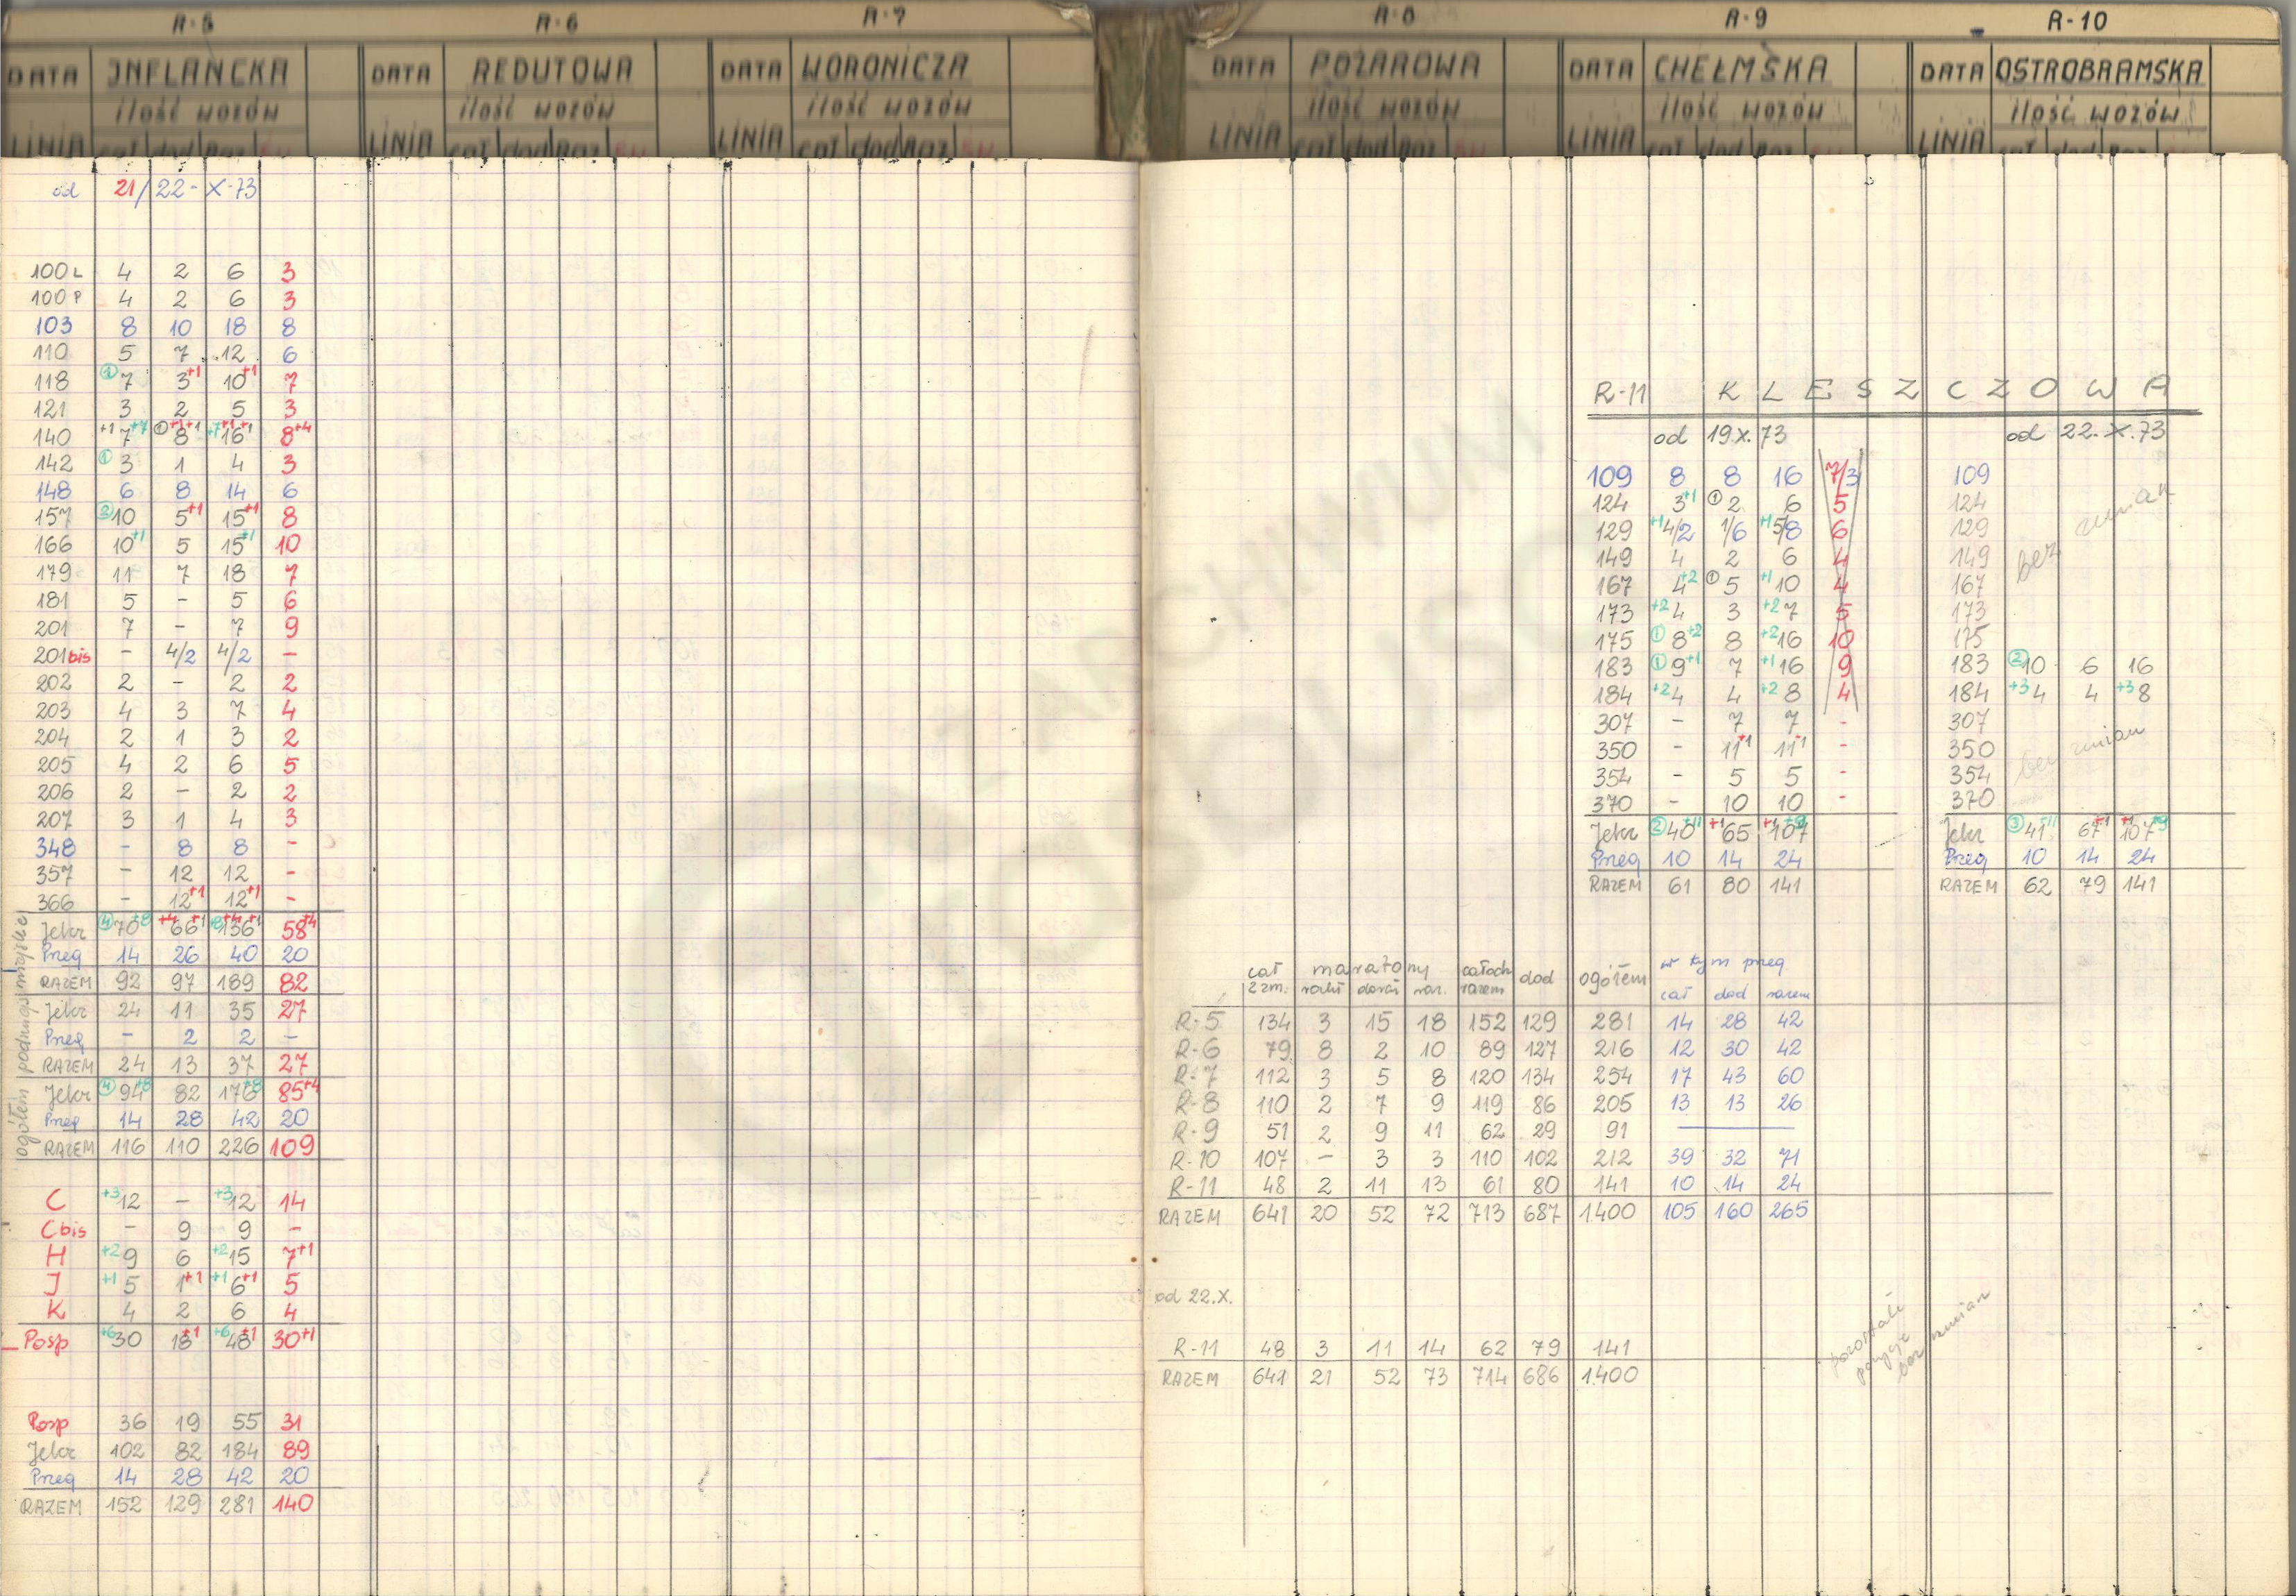 R-5 R-6 R-7 R-8 R-9 R-10
DATA INFLANCKA DATA REDUTOWA DATA WORONICZA DATA POŻAROWA DATA CHEŁMSKA DATA OSTROBRAMSKA
ilość wozów ilość wozów ilość wozów ilość wozów ilość wozów ilość wozów
LINIA cał dod Raz LINIA cał dod Raz LINIA cał dod Raz LINIA cał dod Raz LINIA cał dod Raz LINIA cał dod Raz
od 21/22-X-73
100L 4 2 6 3
100P 4 2 6 3
103 8 10 18 8
110 5 7 12 6
118 ① 7 3+1 10+1 7
121 3 2 5 3
140 +1 7+7 ① 8+1+1 +7 16+1+1 8+4
142 ① 3 1 4 3
148 6 8 14 6
157 ② 10 5+1 15+1 8
166 10+1 5 15+1 10
179 11 7 18 7
181 5 - 5 6
201 7 - 7 9
201bis - 4/2 4/2 -
202 2 - 2 2
203 4 3 7 4
204 2 1 3 2
205 4 2 6 5
206 2 - 2 2
207 3 1 4 3
348 - 8 8 -
357 - 12 12 -
366 - 12+1 12+1 -
Jelcz ④ 70+8 +4 66+1 +8 +4 136+1 58+4
Przeg 14 26 40 20
RAZEM 92 97 189 82
Jelcz 24 11 35 27
Przeg - 2 2 -
RAZEM 24 13 37 27
Jelcz ④ 94+8 82 176+8 85+4
Przeg 14 28 42 20
RAZEM 116 110 226 109
ogółem podmiejskie
C +3 12 - +3 12 14
C bis - 9 9 -
H +2 9 6 +2 15 7+1
J +1 5 1+1 +1 6+1 5
K 4 2 6 4
Posp +6 30 18+1 +6 48+1 30+1
Posp 36 19 55 31
Jelcz 102 82 184 89
Przeg 14 28 42 20
RAZEM 152 129 281 140
R-11 KLESZCZOWA
od 19 X. 73 od 22. X. 73
109 8 8 16 7/3 109
124 3+1 ① 2 6 5 124
129 +1 4/2 1/6 +1 5/8 6 129
149 4 2 6 4 149
167 4+2 ① 5 +1 10 4 167
173 +2 4 3 +2 7 5 173
175 ① 8+2 8 +2 16 10 175
bez zmian
183 ① 9+1 7 +1 16 9 183 ② 10 6 16
184 +2 4 4 +2 8 4 184 +3 4 4 +3 8
307 - 7 7 - 307
350 - 11+1 11+1 - 350
354 - 5 5 - 354
370 - 10 10 - 370
bez zmian
Jelcz ② 40+11 +1 65 +1 107+9 Jelcz ③ 41+11 67+1 +1 107+9
Przeg 10 14 24 Przeg 10 14 24
RAZEM 61 80 141 RAZEM 62 79 141
cał 2 zm. maratony całoch razem dod ogółem w tym przeg
cał dod razem
R-5 134 3 15 18 152 129 281 14 28 42
R-6 79 8 2 10 89 127 216 12 30 42
R-7 112 3 5 8 120 134 254 17 43 60
R-8 110 2 7 9 119 86 205 13 13 26
R-9 51 2 9 11 62 29 91
R-10 107 - 3 3 110 102 212 39 32 71
R-11 48 2 11 13 61 80 141 10 14 24
RAZEM 641 20 52 72 713 687 1400 105 160 265
od 22.X.
R-11 48 3 11 14 62 79 141
RAZEM 641 21 52 73 714 686 1400
pozostałe pozycje bez zmian